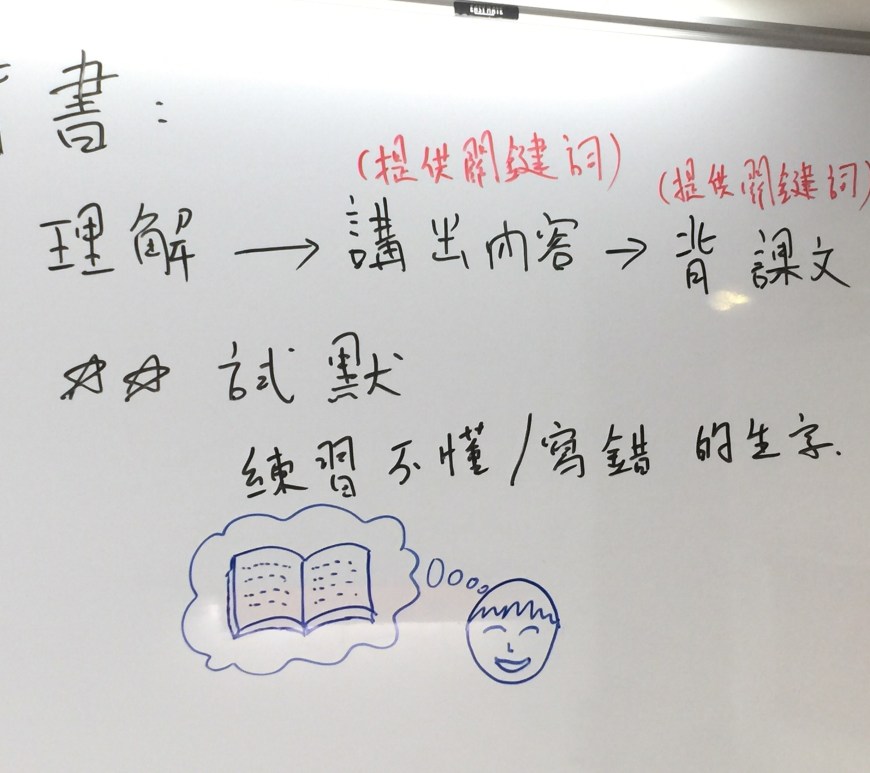 書：
(提供關鍵詞) (提供關鍵詞)
理解 → 講出內容 → 背 課文
☆☆ 試默
練習不懂/寫錯 的生字.